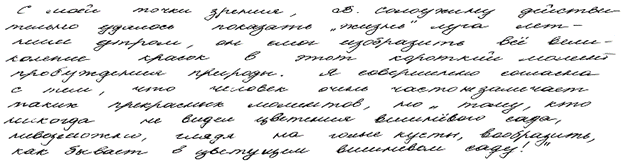 С моей точки зрения, В. Солоухину действи-
тельно удалось показать „жизнь" луга лет-
ним утром, он смог изобразить всё вели-
колепие красок в этот короткий момент
пробуждения природы. Я совершенно согласна
с тем, что человек очень часто замечает
таких прекрасных моментов, но „тому, кто
никогда не видел цветения вишнёвого сада,
невозможно, глядя на голые кусты, вообразить,
как бывает в цветущем вишнёвом саду!"